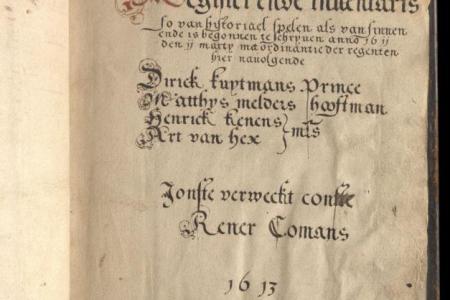 Register ende inventaris
so van hystoriael spelen als van sinnen
ende is begonnen te schryven anno 1611
den 11 marty na ordinantie der regenten
hier navolgende
Dirick kuytmans Prince
Matthys melders hooftman
Henrick kenens
Art van hex
Jonste verweckt conste
Rener Comans
1613